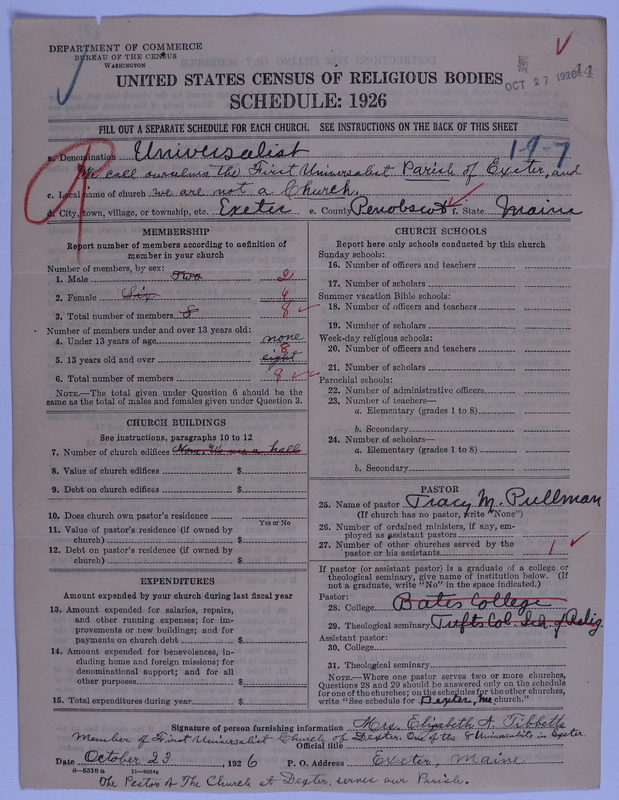 DEPARTMENT OF COMMERCE
BUREAU OF THE CENSUS
WASHINGTON
OCT 27 1926
44
UNITED STATES CENSUS OF RELIGIOUS BODIES
SCHEDULE: 1926
FILL OUT A SEPARATE SCHEDULE FOR EACH CHURCH. SEE INSTRUCTIONS ON THE BACK OF THIS SHEET
a. Denomination Universalist 1-9-7
We call ourselves the First Universalist Parish of Exeter, and
c. Local name of church we are not a Church.
d. City, town, village, or township, etc. Exeter e. County Penobscot f. State Maine
MEMBERSHIP
Report number of members according to definition of
member in your church
Number of members, by sex:
1. Male Two 2
2. Female Six 6
3. Total number of members 8 8
Number of members under and over 13 years old:
4. Under 13 years of age none
5. 13 years old and over eight 8
6. Total number of members 8
NOTE.—The total given under Question 6 should be
same as the total of males and females given under Question 3.
CHURCH BUILDINGS
See instructions, paragraphs 10 to 12
7. Number of church edifices None. We use a hall
8. Value of church edifices $
9. Debt on church edifices $
10. Does church own pastor's residence
Yes or No
11. Value of pastor's residence (if owned by
church) $
12. Debt on pastor's residence (if owned by
church) $
EXPENDITURES
Amount expended by your church during last fiscal year
13. Amount expended for salaries, repairs,
and other running expenses; for im-
provements or new buildings; and for
payments on church debt $
14. Amount expended for benevolences, in-
cluding home and foreign missions; for
denominational support; and for all
other purposes $
15. Total expenditures during year $
CHURCH SCHOOLS
Report here only schools conducted by this church
Sunday schools:
16. Number of officers and teachers
17. Number of scholars
Summer vacation Bible schools:
18. Number of officers and teachers
19. Number of scholars
Week-day religious schools:
20. Number of officers and teachers
21. Number of scholars
Parochial schools:
22. Number of administrative officers
23. Number of teachers—
a. Elementary (grades 1 to 8)
b. Secondary
24. Number of scholars—
a. Elementary (grades 1 to 8)
b. Secondary
PASTOR
25. Name of pastor Tracy M. Pullman
(If church has no pastor, write "None")
26. Number of ordained ministers, if any, em-
ployed as assistant pastors
27. Number of other churches served by the
pastor or his assistants 1
If pastor (or assistant pastor) is a graduate of a college or
theological seminary, give name of institution below. (If
not a graduate, write "No" in the space indicated.)
Pastor:
28. College Bates College
29. Theological seminary Tufts Col. Sch. of Relig.
Assistant pastor:
30. College
31. Theological seminary
NOTE.—Where one pastor serves two or more churches,
Questions 28 and 29 should be answered only on the schedule
for one of the churches; on the schedules for the other churches,
write "See schedule for Dexter, Me church."
Signature of person furnishing information Mrs. Elizabeth A. Tibbetts
Member of First Universalist Church of Dexter. One of the 8 Universalists in Exeter.
Official title
Date October 23, 1926 P. O. Address Exeter, Maine
8—5318 a 11—9054
The Pastor of The Church at Dexter, serves our Parish.